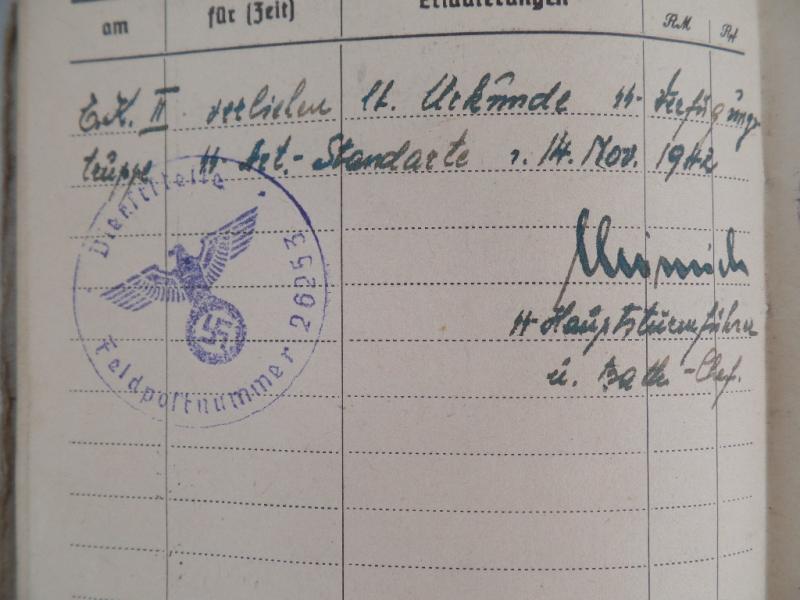 am für (Zeit) Erläuterungen RM
E.K. II verliehen lt. Urkunde SS-Verfügungs
truppe SS Art.-Standarte v. 14. Nov. 1942
Dienststelle
Feldpostnummer 26253
SS-Hauptsturmführer
u. Battr.-Chef.